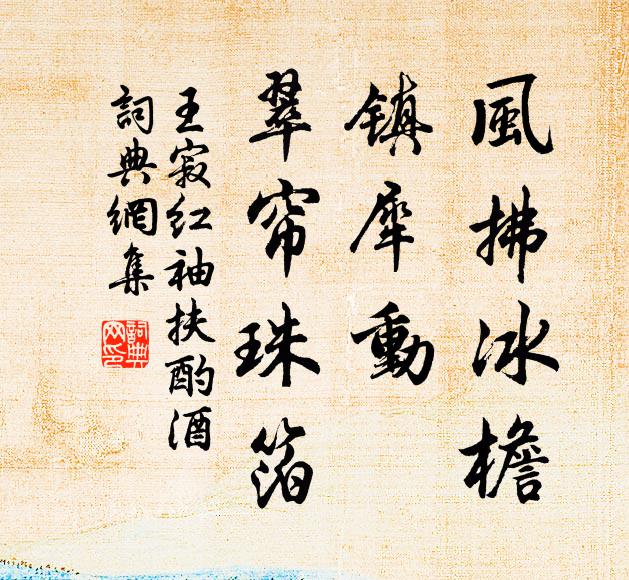 風拂冰檐
镇犀動
翠帘珠箔
王寂红袖扶酌酒
詞典網集
詞典网印